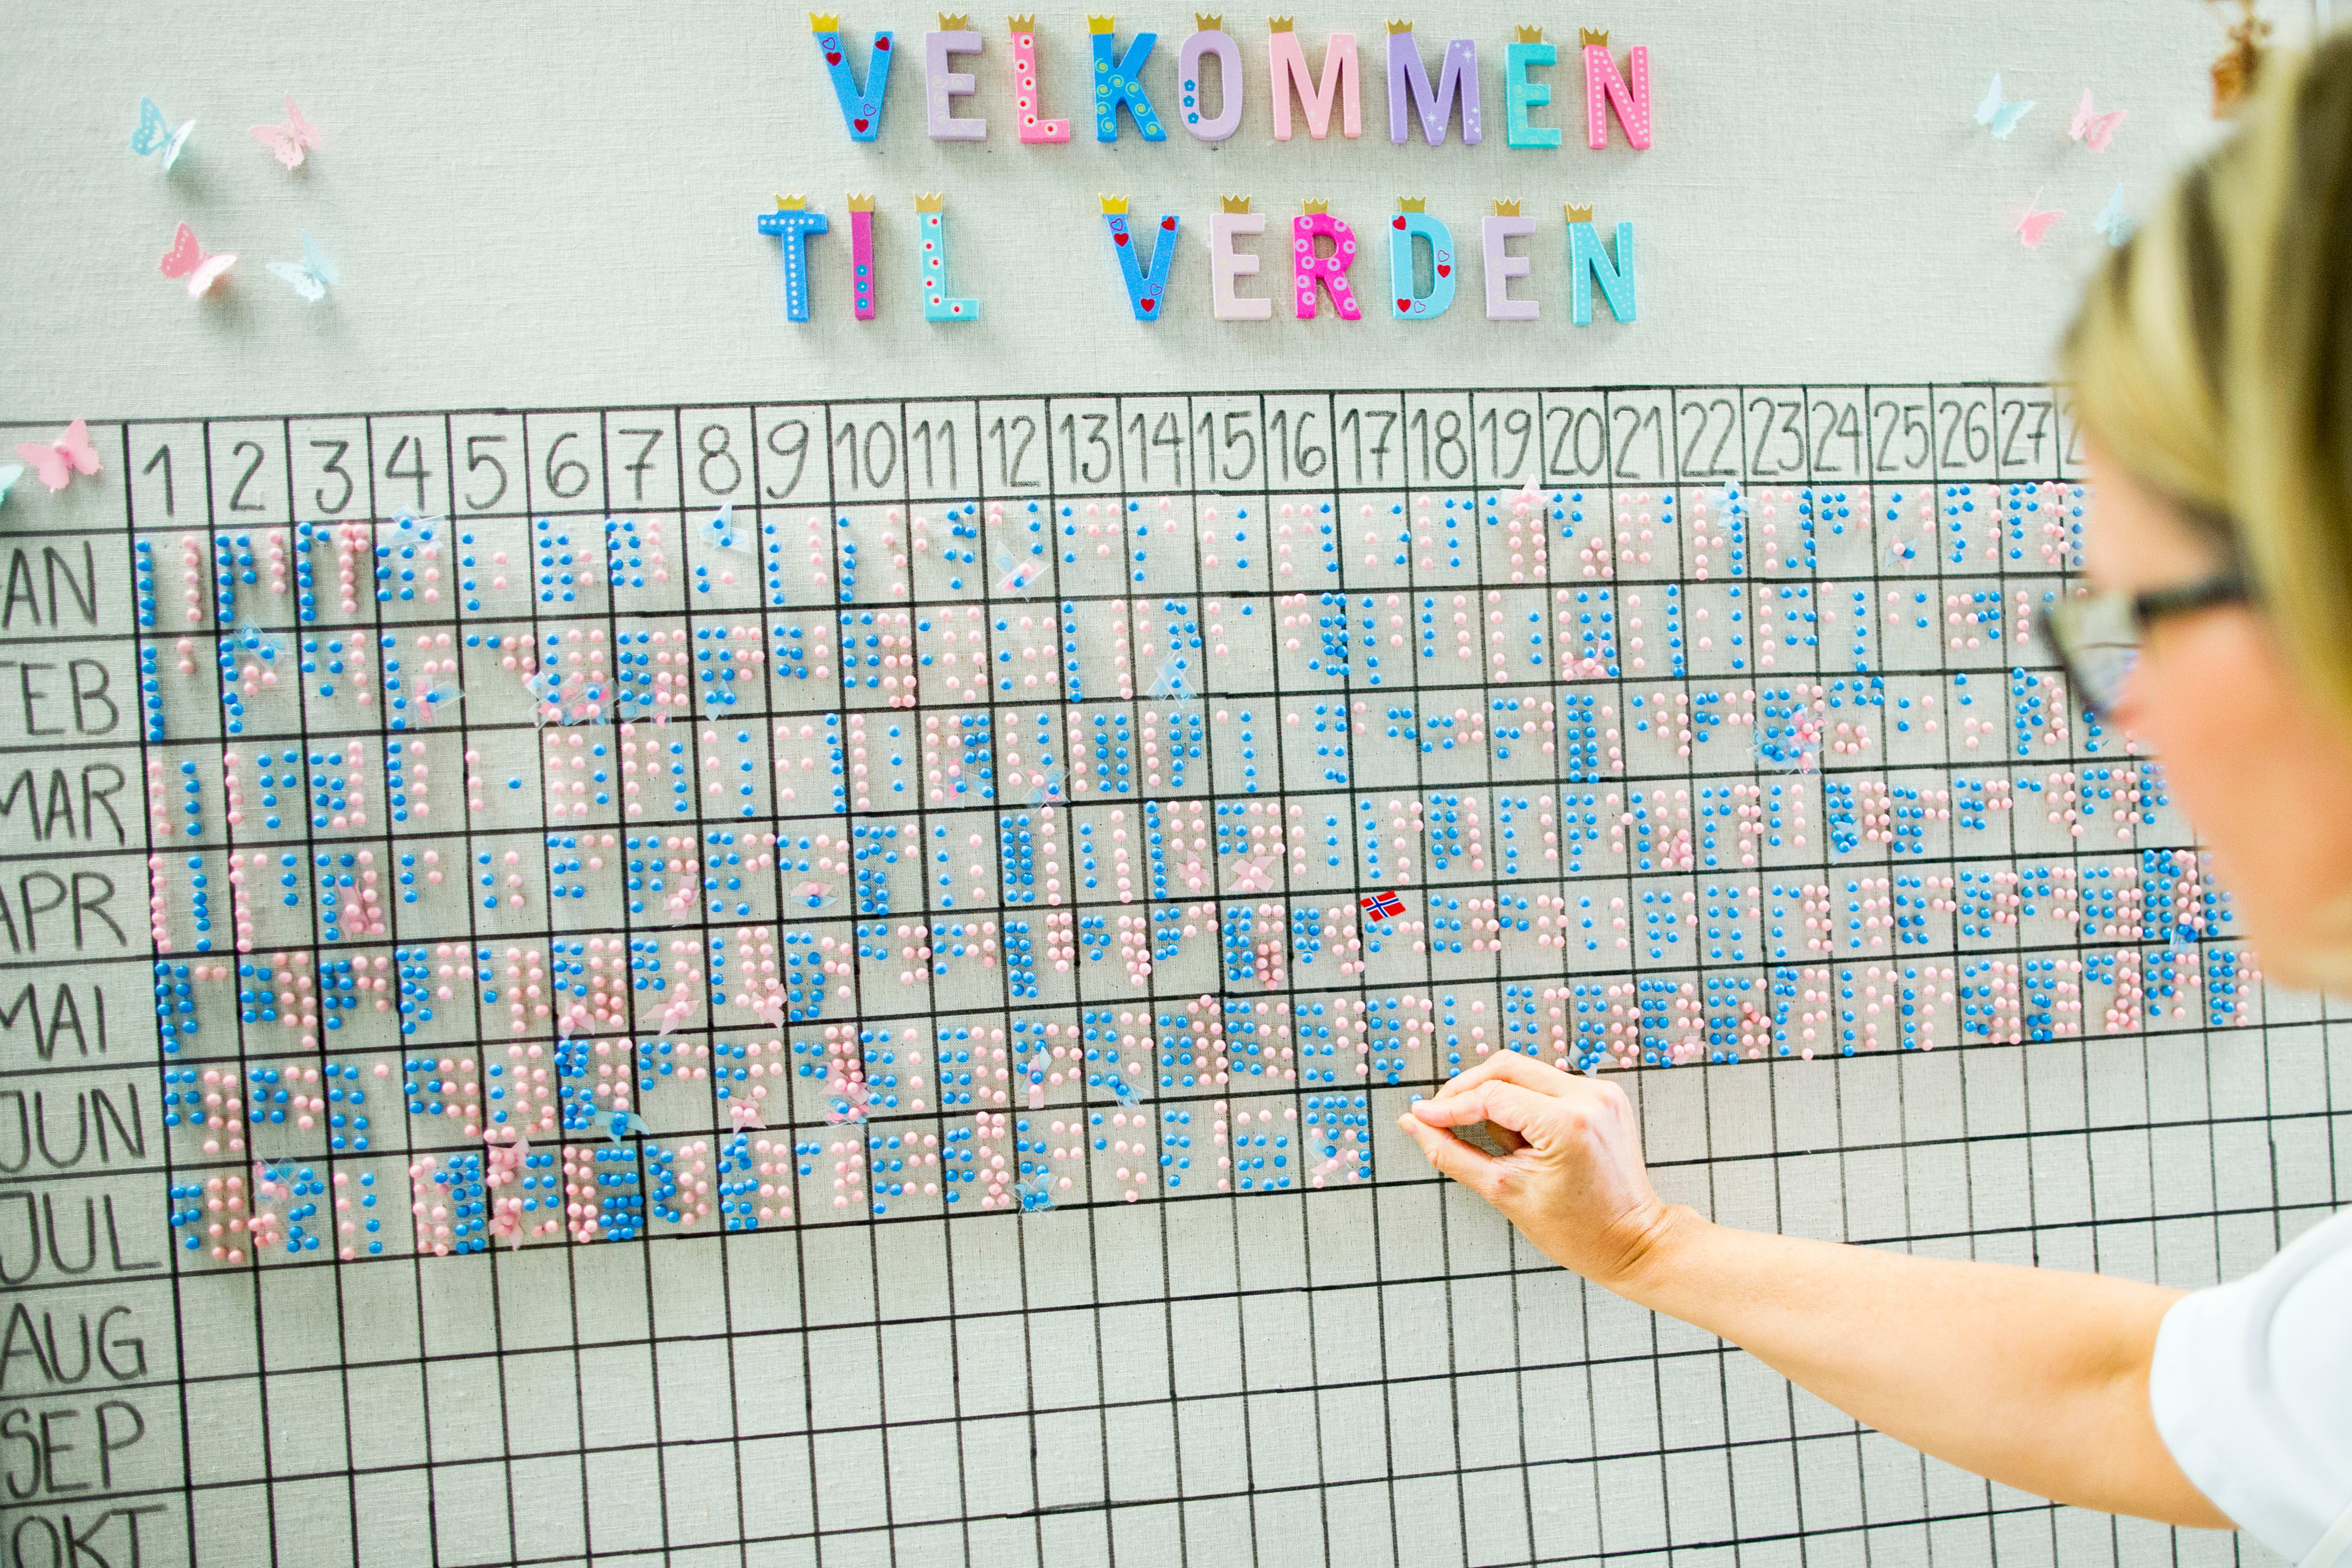 VELKOMMEN
TIL VERDEN
1 2 3 4 5 6 7 8 9 10 11 12 13 14 15 16 17 18 19 20 21 22 23 24 25 26 27
AN
EB
MAR
APR
MAI
JUN
JUL
AUG
SEP
OKT